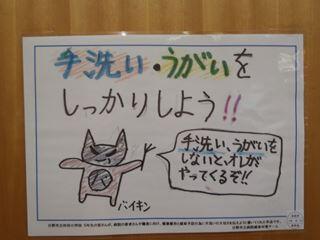 手洗い・うがいを
しっかりしよう!!
手洗い、うがいを
しないと、オレが
やってくるぞ!!
バイキン